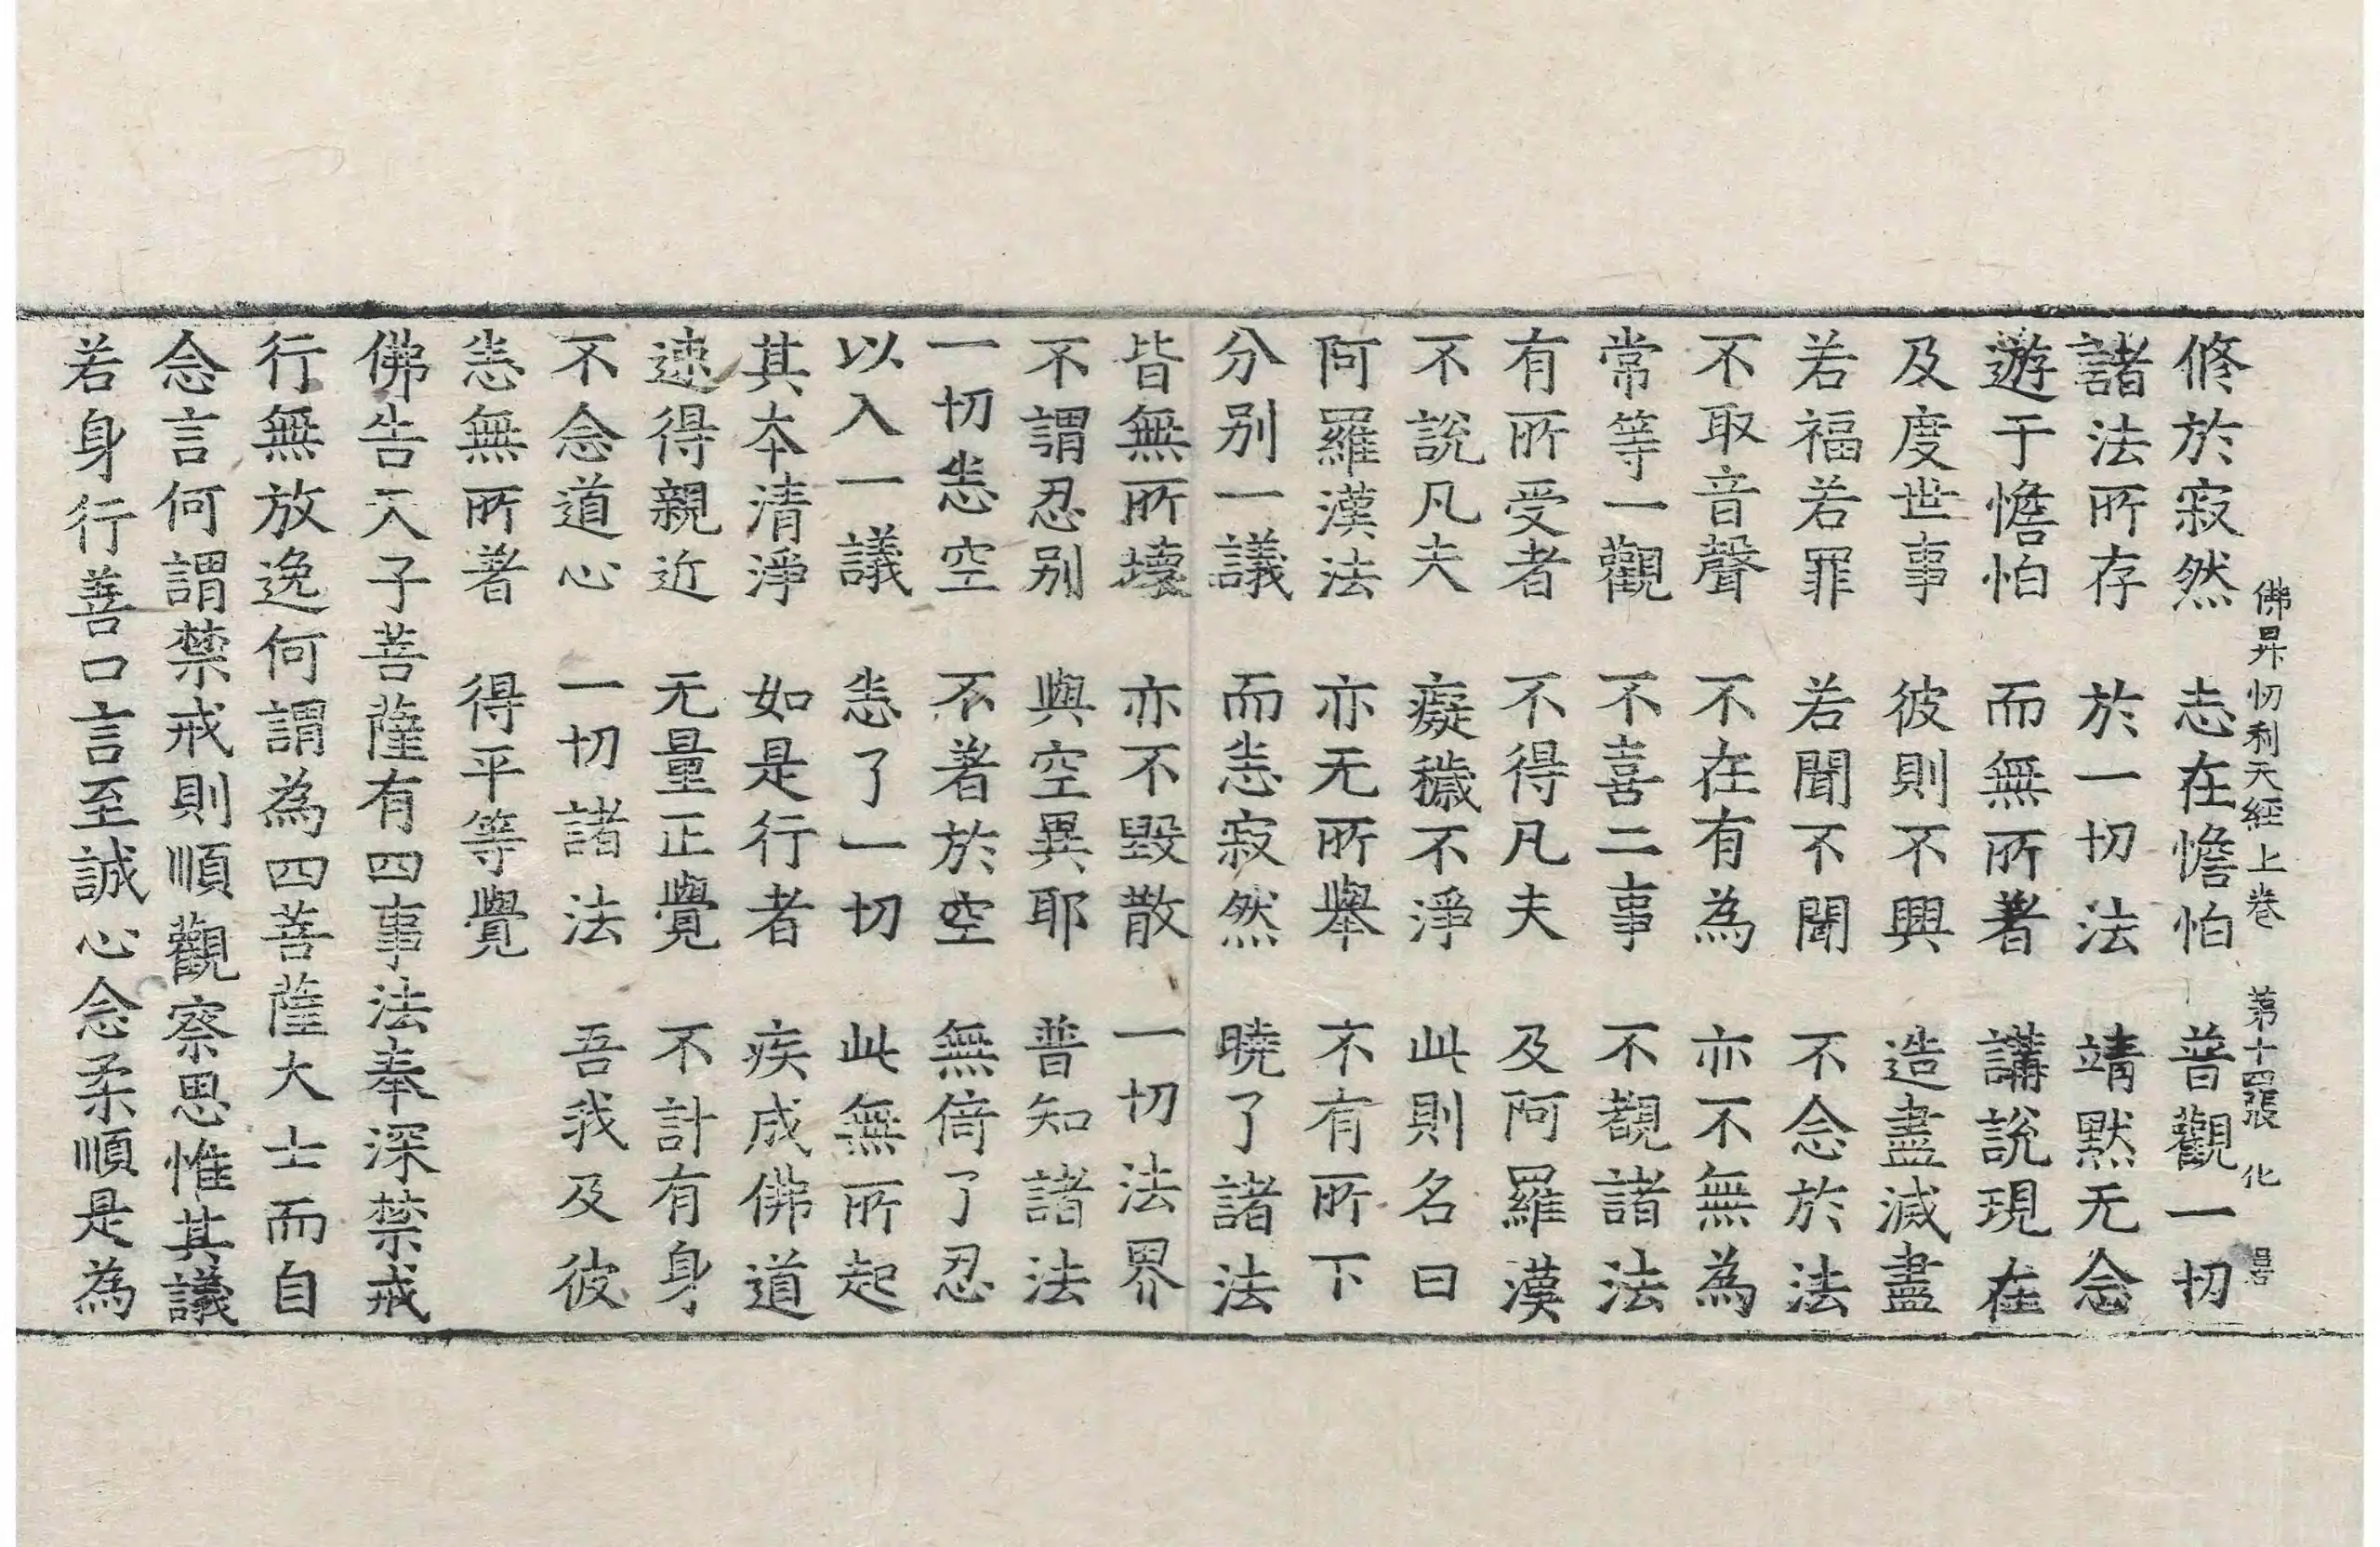 佛昇忉利天經上卷　第十四張　化　昌
修於寂然　志在憺怕　普觀一切
諸法所存　於一切法　靖默无念
遊于憺怕　而無所著　講說現在
及度世事　彼則不興　造盡滅盡
若福若罪　若聞不聞　不念於法
不取音聲　不在有為　亦不無為
常等一觀　不喜二事　不覩諸法
有所受者　不得凡夫　及阿羅漢
不說凡夫　癡穢不淨　此則名曰
阿羅漢法　亦无所舉　不有所下
分别一議　而恚寂然　曉了諸法
皆無所壞　亦不毀散　一切法界
不謂忍别　與空異耶　普知諸法
一切恚空　不著於空　無倚了忍
以入一議　恚了一切　此無所起
其本清淨　如是行者　疾成佛道
速得親近　无量正覺　不計有身
不念道心　一切諸法　吾我及彼
恚無所著　得平等覺
佛告天子菩薩有四事法奉深禁戒
行無放逸何謂為四菩薩大士而自
念言何謂禁戒則順觀察思惟其議
若身行善口言至誠心念柔順是為